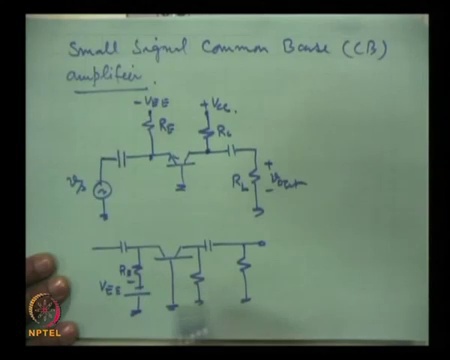 Small Signal Common Base (CB)
amplifier.
- VEE
+ Vcc
RE
RL
vs
RL
+
vout
-
RE
-
VEE
NPTEL